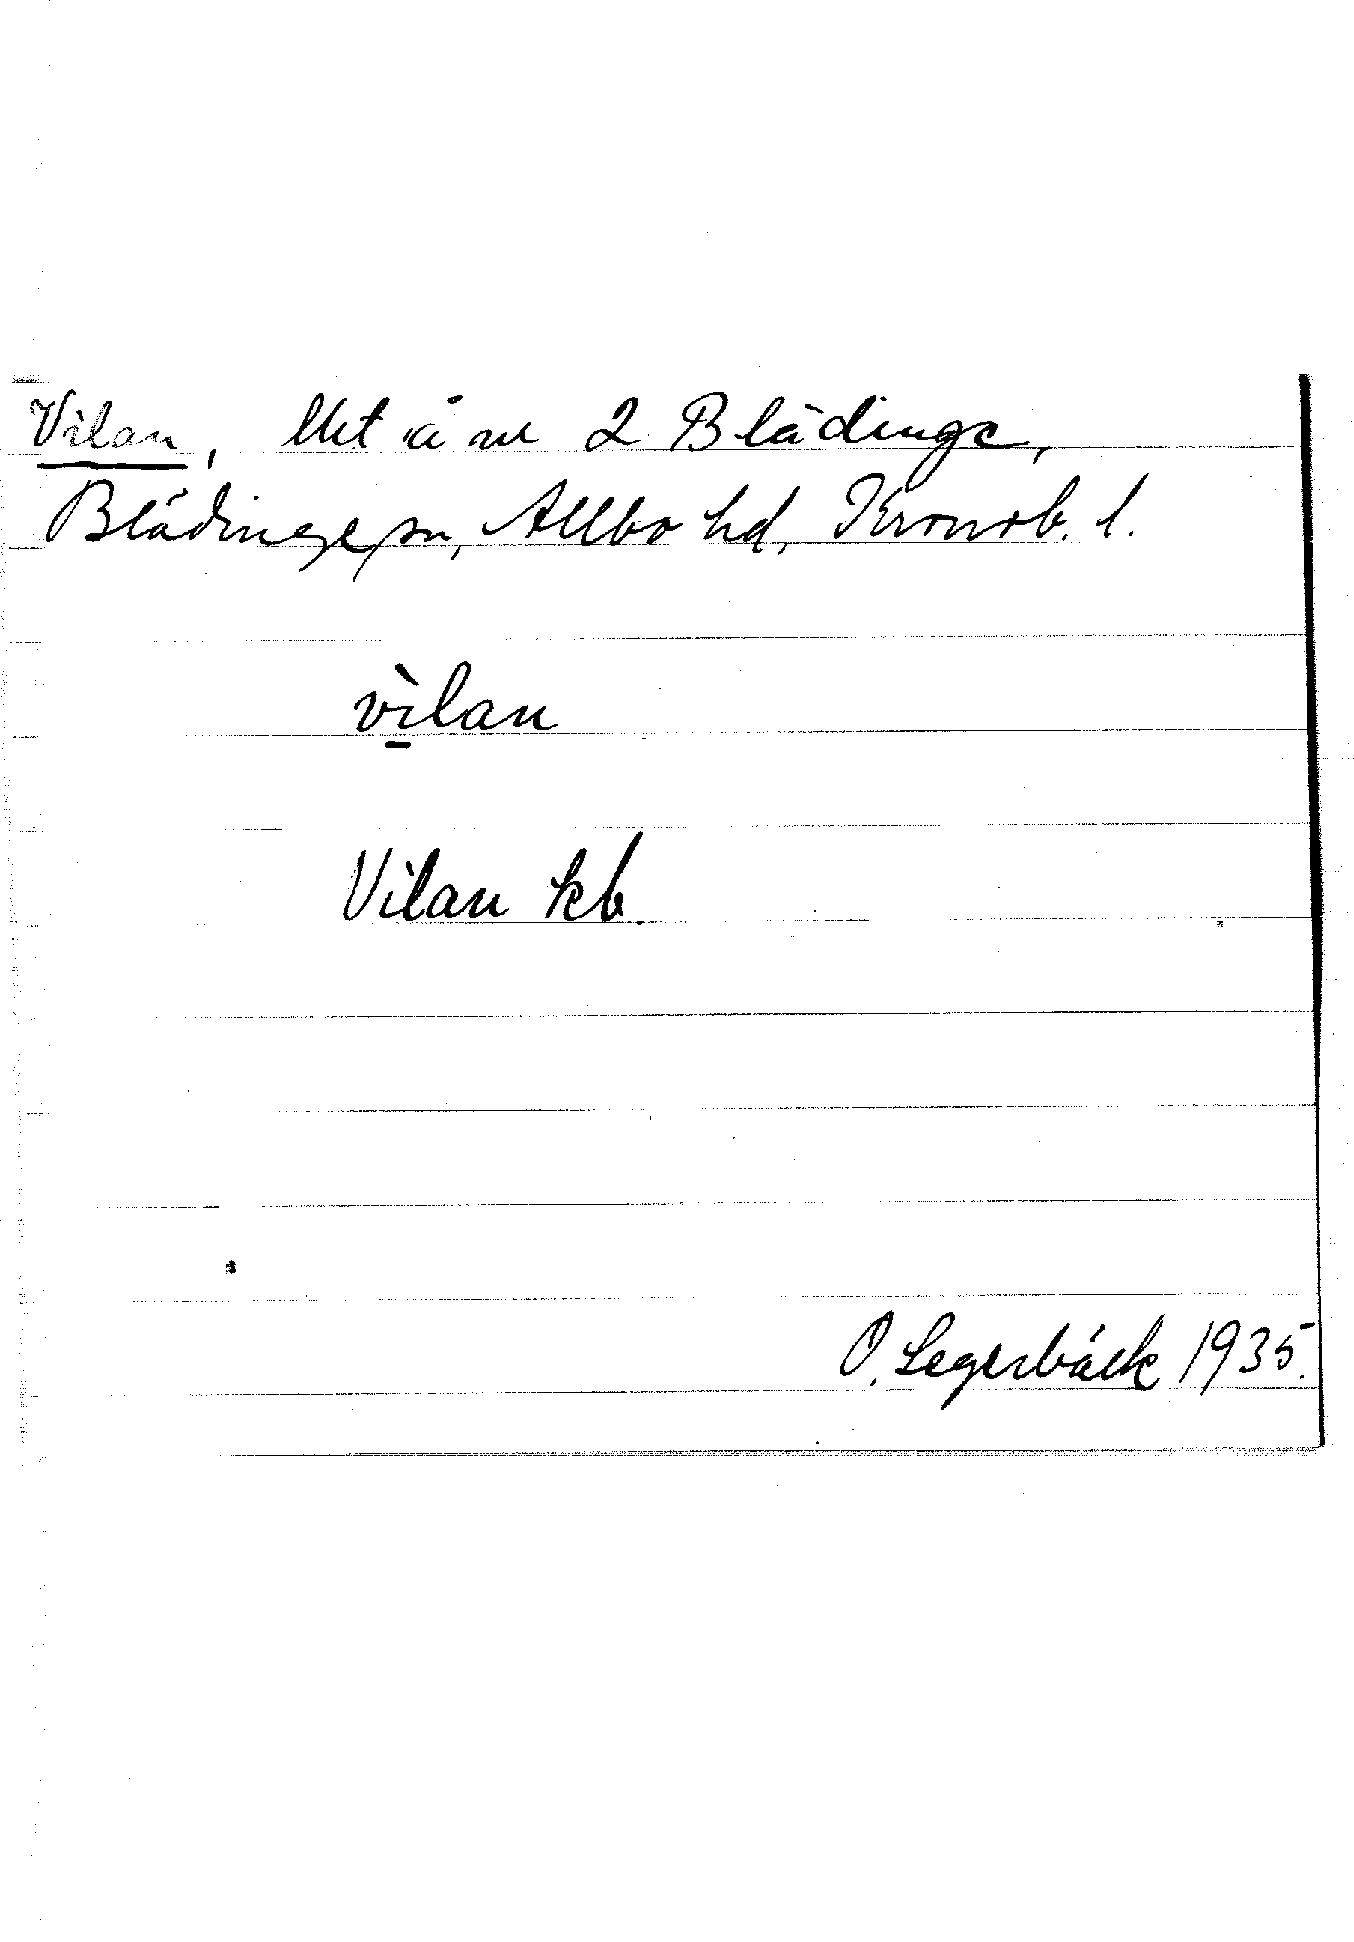 Vilan, Utt å nr 2 Blädinge,
Blädinge sn, Allbo hd, Kronob. l.
vìlan
Vilan kb.
O. Legerbäck 1935.